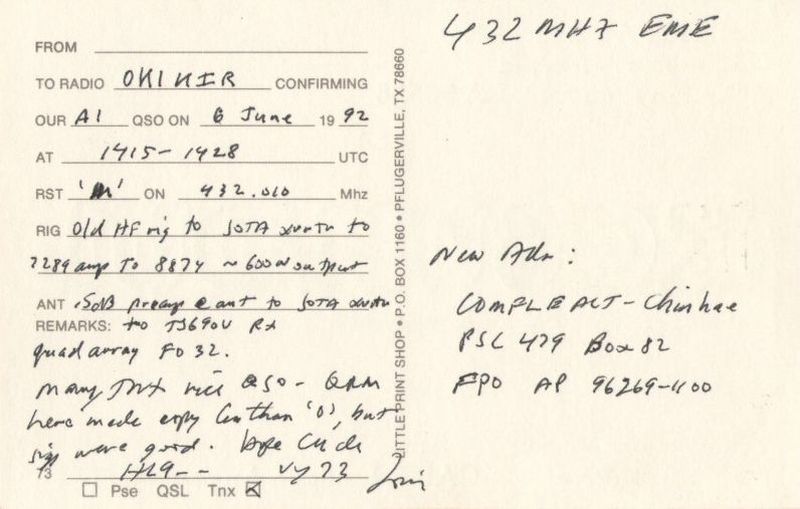 432 MHz EME
FROM
TO RADIO OK1KIR CONFIRMING
OUR A1 QSO ON 6 June 1992
AT 1415-1428 UTC
RST 'M' ON 432.010 Mhz
RIG Old HF rig to SOTA xvrtr to
7289 amp to 8874 ~ 600w output
ANT .5dB preamp @ ant to SOTA xvrtr
REMARKS: to TS690V Rx
quad array FO 32.
Many TNX nice QSO - QRM
here made copy less than 'O', but
sigs were good. Hpe CU de
73 HL9-- vy 73
Pse QSL Tnx
LITTLE PRINT SHOP • P.O. BOX 1160 • PFLUGERVILLE, TX 78660
New Adr:
COMFLEACT-Chinhae
PSC 479 Box 82
FPO AP 96269-1100